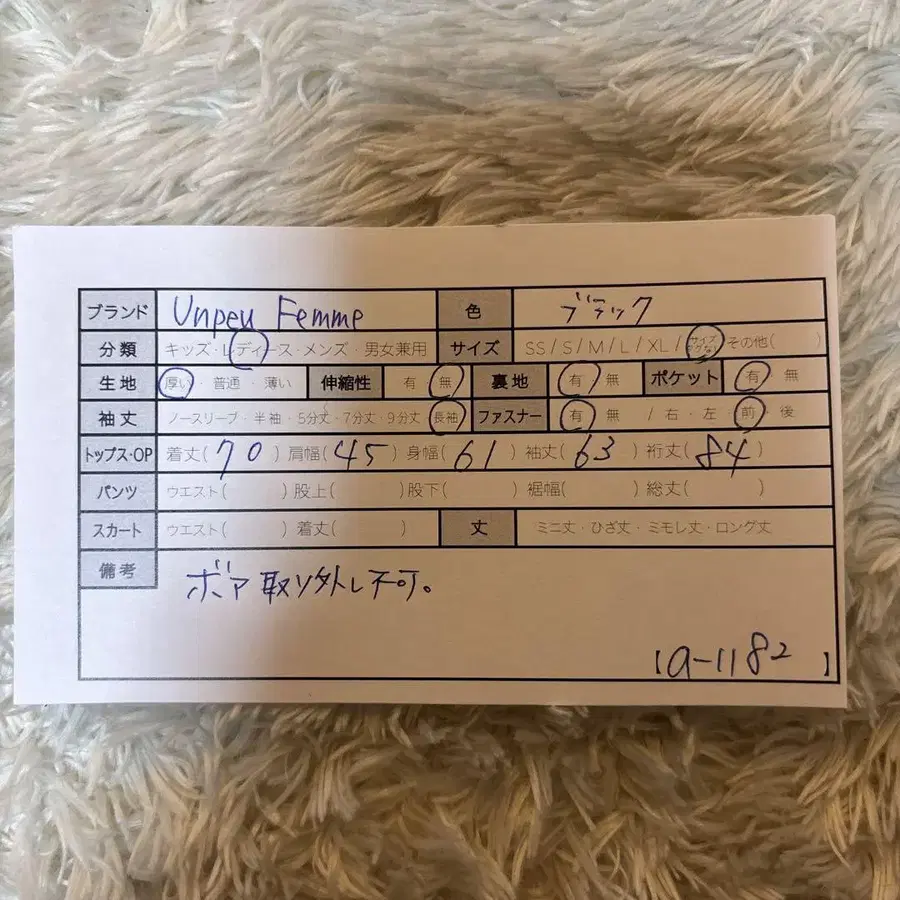 ブランド Unpeu Femme 色 ブラック
分類 キッズ・レディース・メンズ・男女兼用 サイズ SS/S/M/L/XL/サイズタグなし その他( )
生地 厚い・普通・薄い 伸縮性 有 無 裏地 有 無 ポケット 有 無
袖丈 ノースリーブ・半袖・5分丈・7分丈・9分丈・長袖 ファスナー 有 無 /右・左 前・後
トップス・OP 着丈(70)肩幅(45)身幅(61)袖丈(63)裄丈(84)
パンツ ウエスト( )股上( )股下( )裾幅( )総丈( )
スカート ウエスト( )着丈( ) 丈 ミニ丈・ひざ丈・ミモレ丈・ロング丈
備考
ボア取り外し不可。
【a-1182】